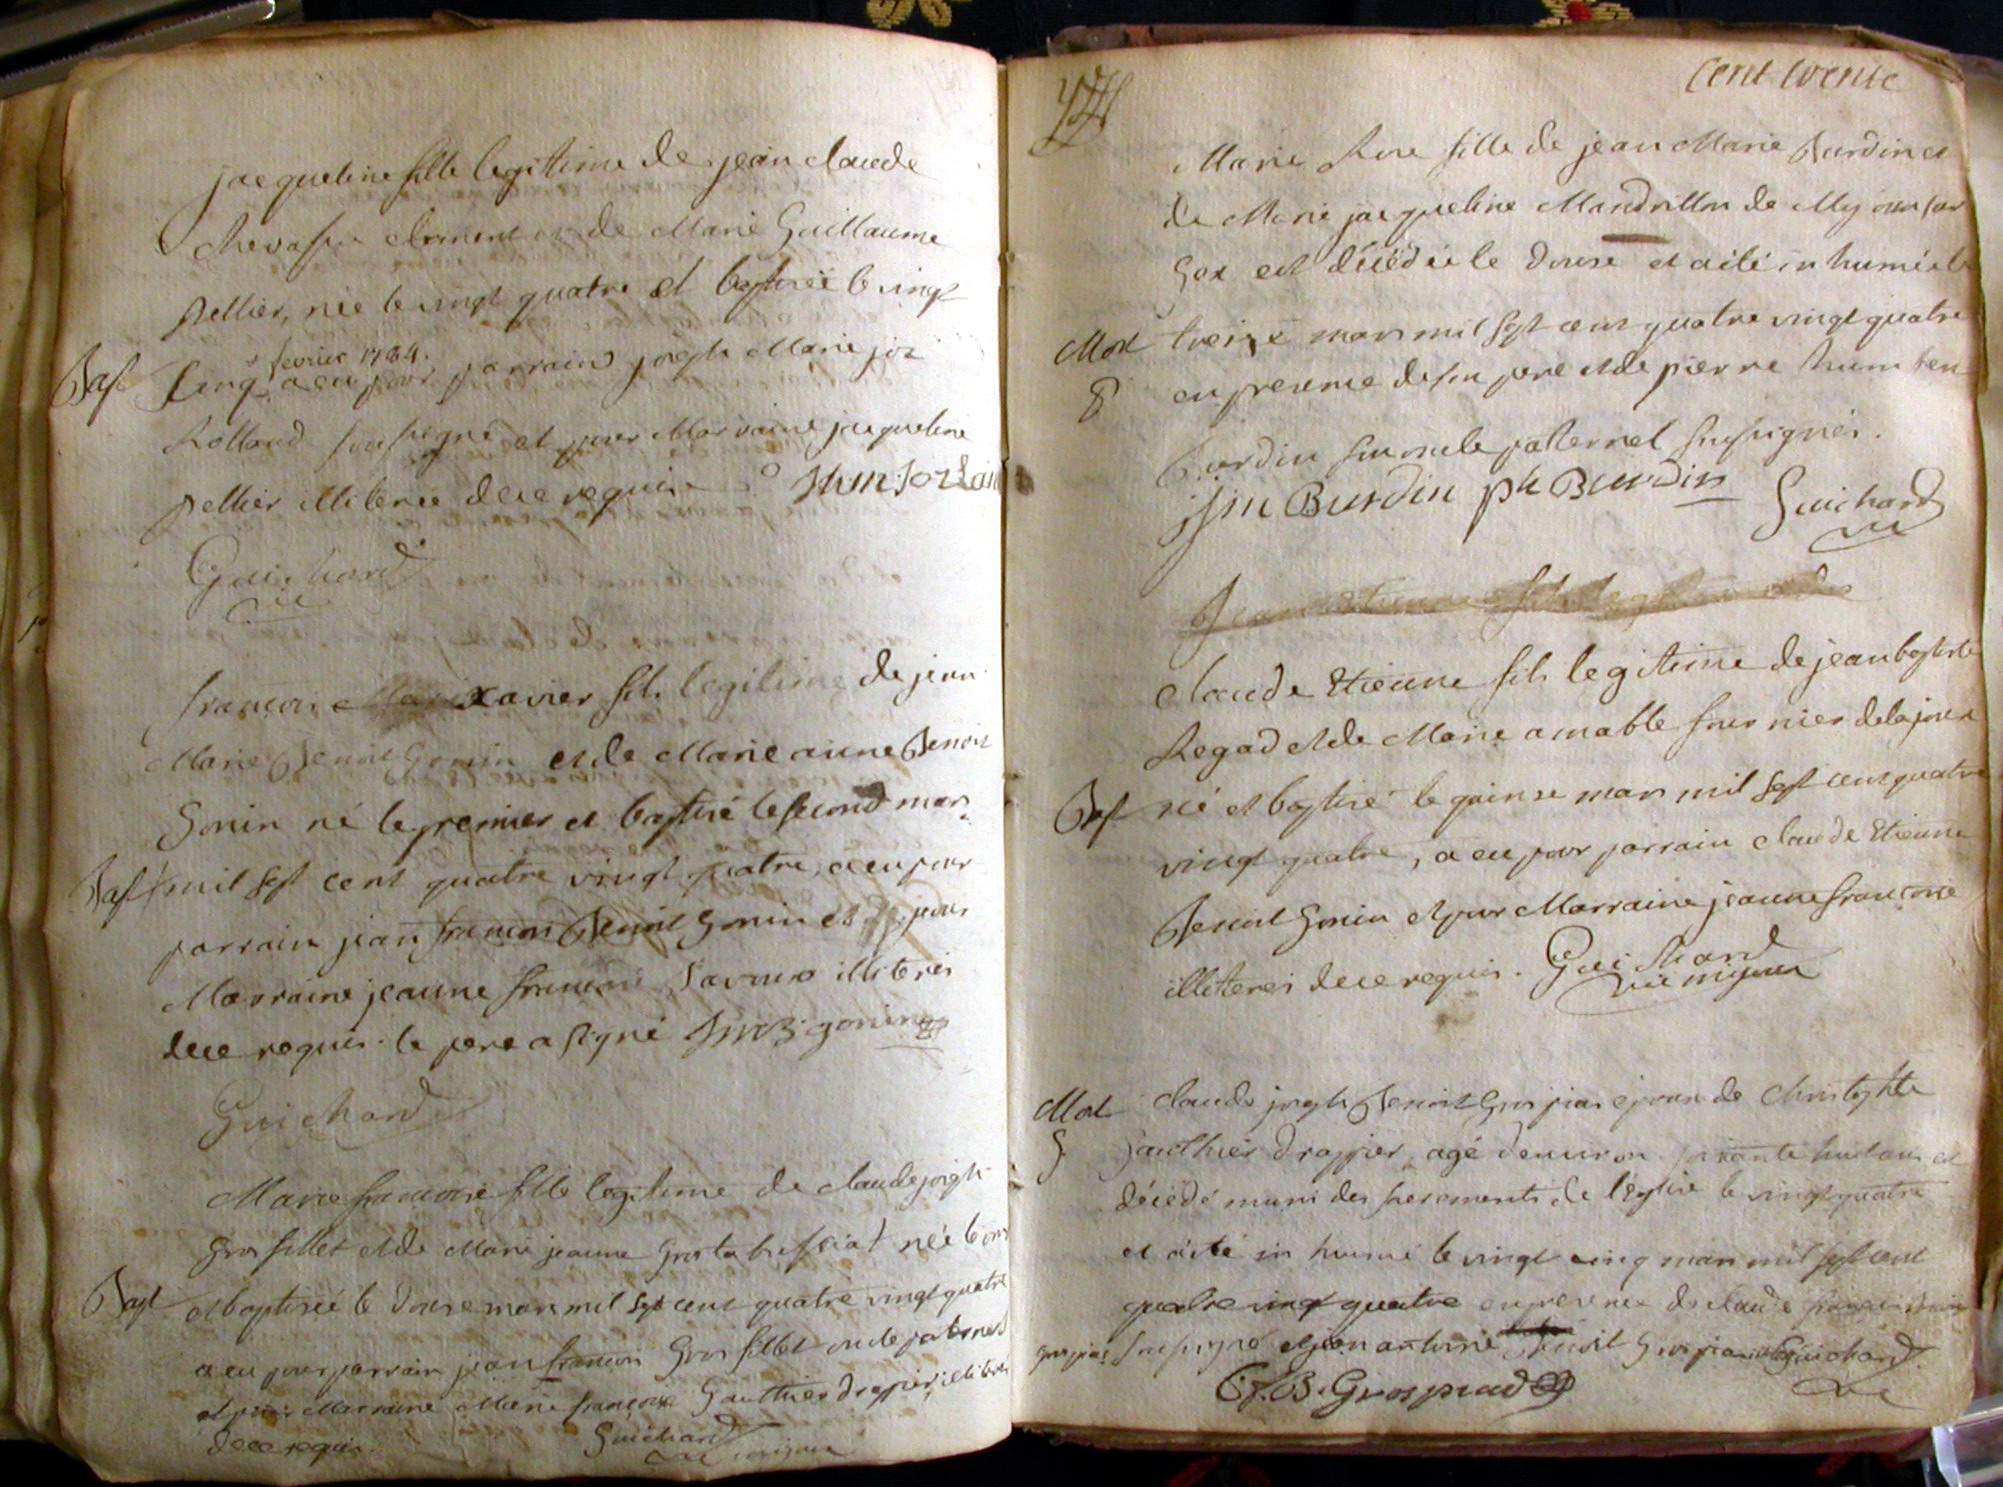 jacqueline fille legitime de jean claude
chevassu clement et de Marie Guillaume
pellier, née le vingt quatre et baptisée le vingt
fevrier 1784.
Bapt cinq a eu pour parrain joseph Marie
Rolland soussigné et pour Marraine jacqueline
pellier illiterée de ce requise
Guichard
francois xavier fils legitime de jean
Marie Benoit Gonin et de Marie anne Benoit
Gonin né le premier et baptisé le second mars
Bapt mil sept cent quatre vingt quatre, a eu pour
parrain jean francois Benoit Gonin et pour
Marraine jeanne francoise illiterés
de ce requis. le pere a signé gonin
Guichard
Marie francoise fille legitime de claude joseph
Gros fillet et de Marie jeanne née le onze
Bapt et baptisée le douze mars mil sept cent quatre vingt quatre
a eu pour parrain jean francois Gros fillet oncle paternel
et pour Marraine Marie françoise Gauthier drappier, illiterés
de ce requis. Guichard
vic mijoux
cent trente
Marie Rose fille de jean Marie Burdin et
de Marie jacqueline Mandrillon de Myjoux sur
Gex est décédée le douse et a été inhumée le
Mort treize mars mil sept cent quatre vingt quatre
8 en presence de son pere et de pierre humbert
Burdin son oncle paternel soussignés.
jm Burdin ph Burdin Guichard
vic
claude Etienne fils legitime de jean baptiste
Regad et de Marie amable fournier de lajoux
Bapt né et baptisé le quinse mars mil sept cent quatre
vingt quatre, a eu pour parrain claude Etienne
Benoit Gonin et pour Marraine jeanne francoise
illiterés de ce requis. Guichard
vic mijoux
Mort claude joseph Benoit Gros piar epoux de
Gauthier drappier, agé d'environ soixante huit ans est
décédé muni des sacrements de l'église le vingt quatre
et a été inhumé le vingt cinq mars mil sept cent
quatre vingt quatre en presence de claude francois
gros piar soussigné et jean antoine Benoit Gros piar Guichard
C. f. B. Grospiard vic